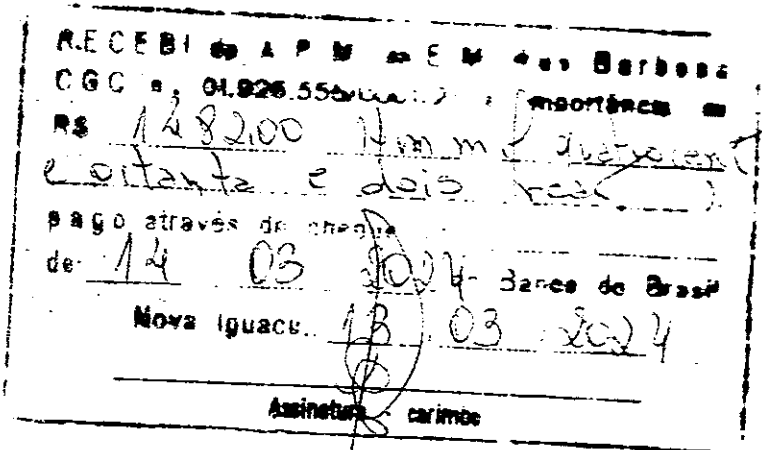 RECEBI da A P M da E M Barbosa
CGC n. 01.926.555 a importância de
R$ 1482,00 (Hum mil quatrocent
e oitenta e dois reais )
pago através de cheque
de 14 03 2024 - Banco do Brasil
Nova Iguacu, 13 03 2024
Assinatura - carimbo